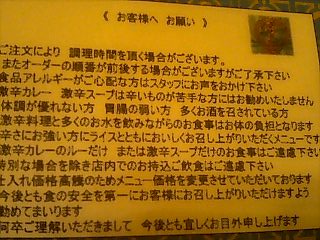 《 お客様へ お願い 》
ご注文により 調理時間を頂く場合がございます。
またオーダーの順番が前後する場合がございますがご了承下さい
食品アレルギーがご心配な方はスタッフにお声をおかけ下さい
激辛カレー 激辛スープは辛いものが苦手な方にはお勧めいたしません
体調が優れない方 胃腸の弱い方 多くお酒を召されている方
激辛料理と多くのお水を飲みながらのお食事はお体の負担となります
辛さにお強い方にライスとともにおいしくお召し上がりいただくメニューです
激辛カレーのルーだけ または激辛スープだけのお食事はご遠慮下さい
特別な場合を除き店内でのお持込ご飲食はご遠慮下さい
仕入れ価格高騰のためメニュー価格を変更させていただいております
今後とも食の安全を第一にお客様にお召し上がりいただけますよう
勤めてまいります
何卒ご理解いただきまして 今後とも宜しくお願い申し上げます